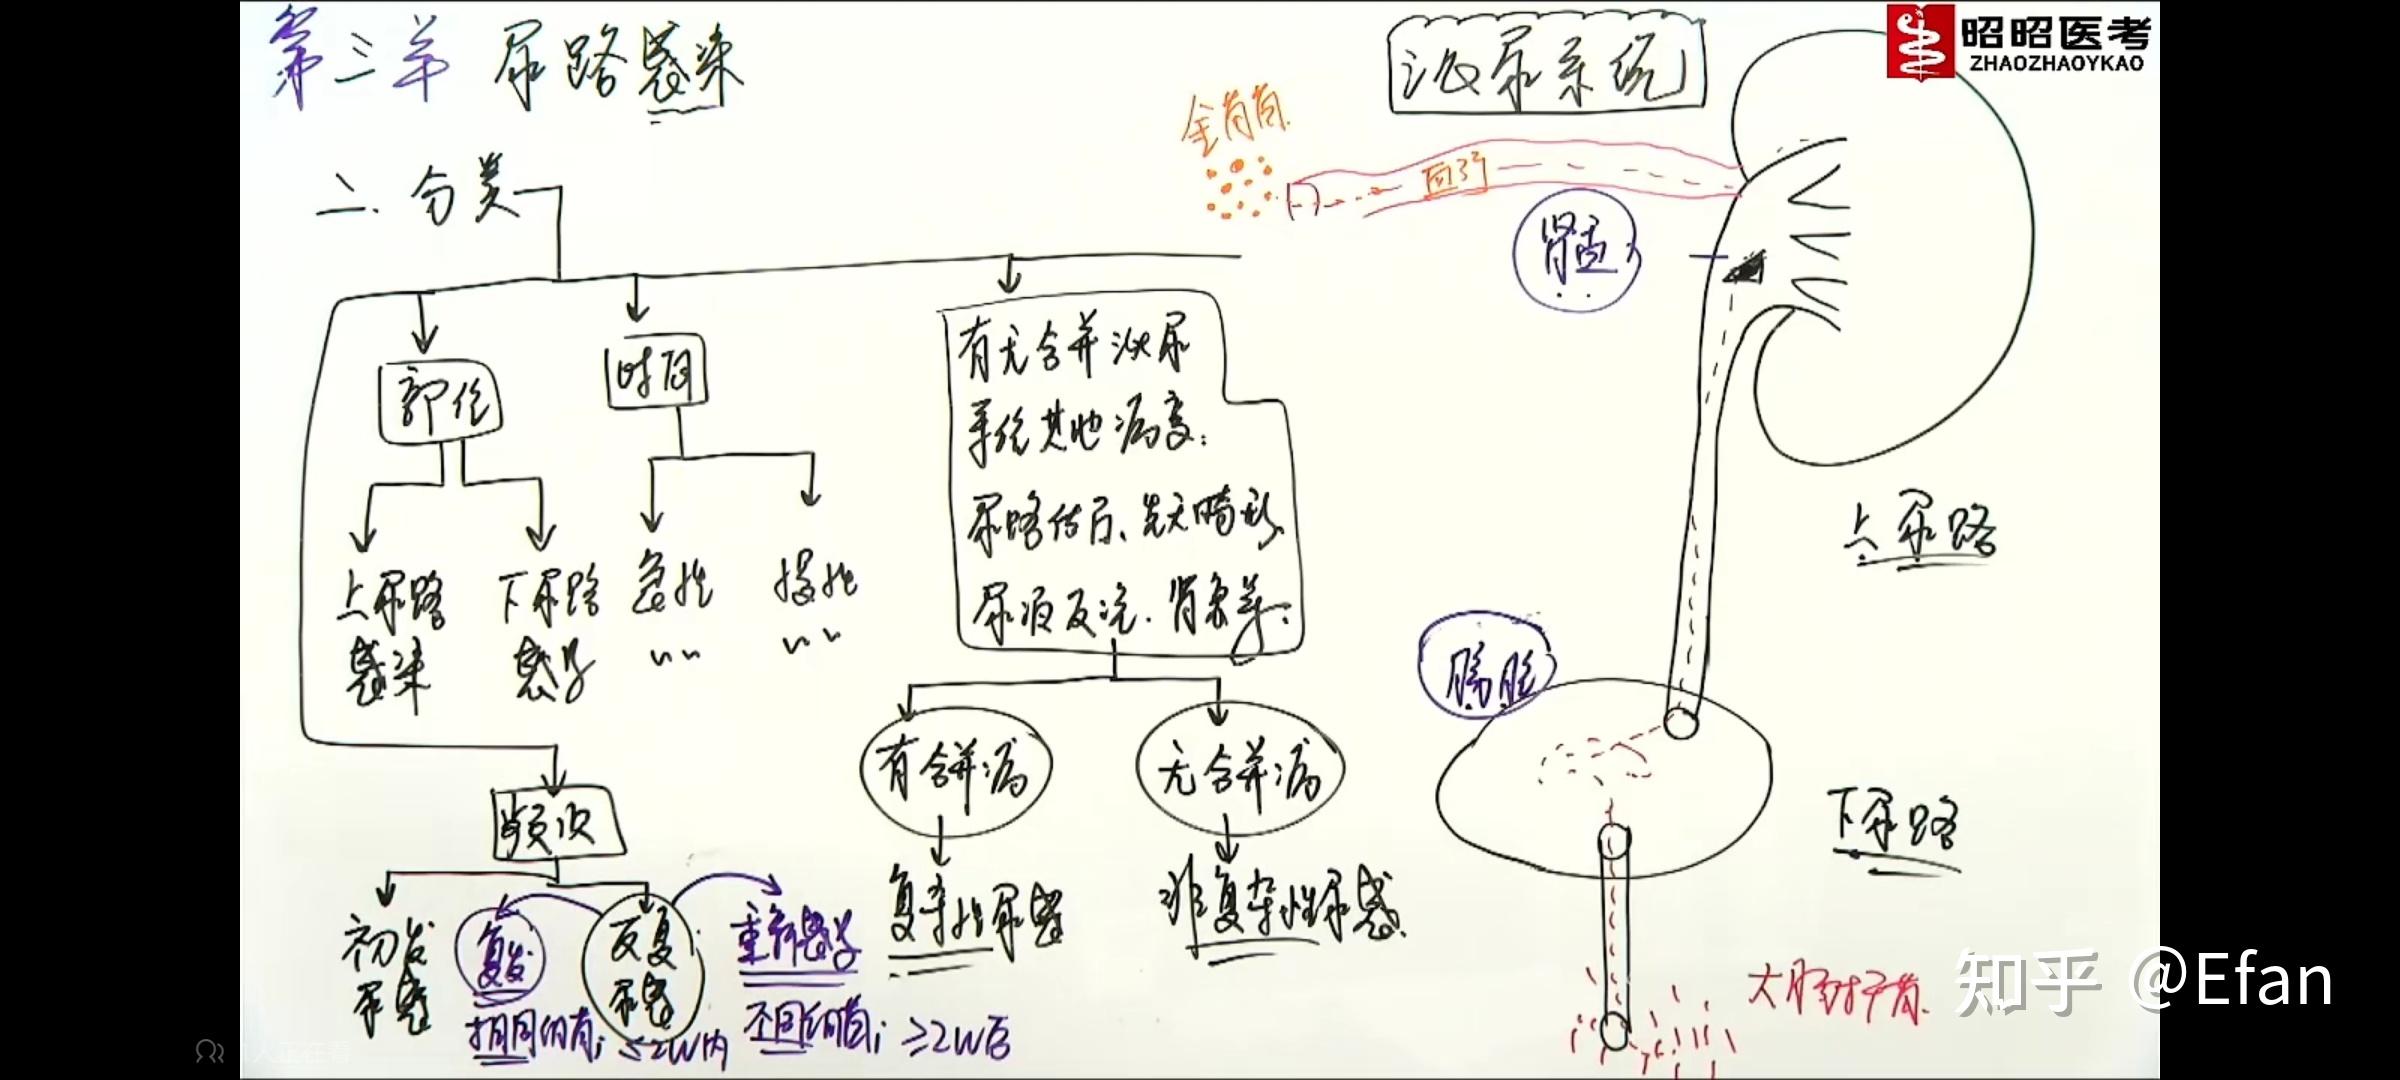 第三羊 尿路感染
泌尿系统
昭昭医考
ZHAOZHAOYKAO
金葡菌
血行
二.分类
肾盂
部位
时间
有无合并泌尿
系统其他病变:
尿路结石、先天畸形
尿液反流.肾衰等.
上尿路
感染
下尿路
感染
急性
〃〃
慢性
〃〃
上尿路
膀胱
有合并病
无合并病
下尿路
频次
复杂性尿感
非复杂性尿感.
初发
尿感
复发
相同细菌; ≤2W内
反复
尿感
重新感染
不同细菌; ≥2W后
大肠杆菌.
知乎 @Efan
人正在看